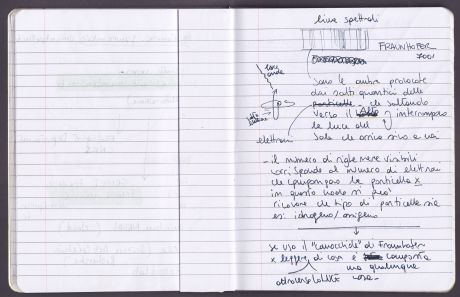 linee spettrali
FRAUNHOFER
luce
sono le ombre provocate
dai salti quantici delle
particelle che saltando
verso il alto interrompono
la luce del
sole che arriva sino a noi
elettroni
- il numero di righe nere visibili
corrisponde al numero di elettroni
che compongono la particella x
in questo modo si può
ricavare che tipo di particella sia
es: idrogeno/ossigeno
se uso il "cannocchiale" di Fraunhofer
x leggere di cosa è composta
una qualunque
cosa